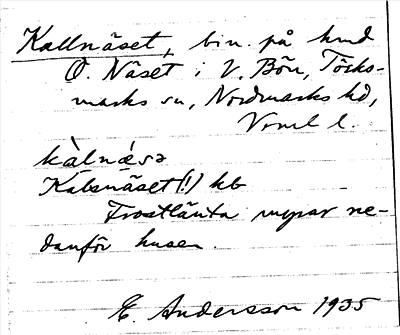 Kallnäset, bin. på hmd
Ö. Näset i V. Bön, Töcks-
marks sn, Nordmarks hd,
Vrml l.
kàlnǽsə
Kalsnäset (!) kb
Frostlänta myrar ne-
danför husen.
E. Andersson 1935